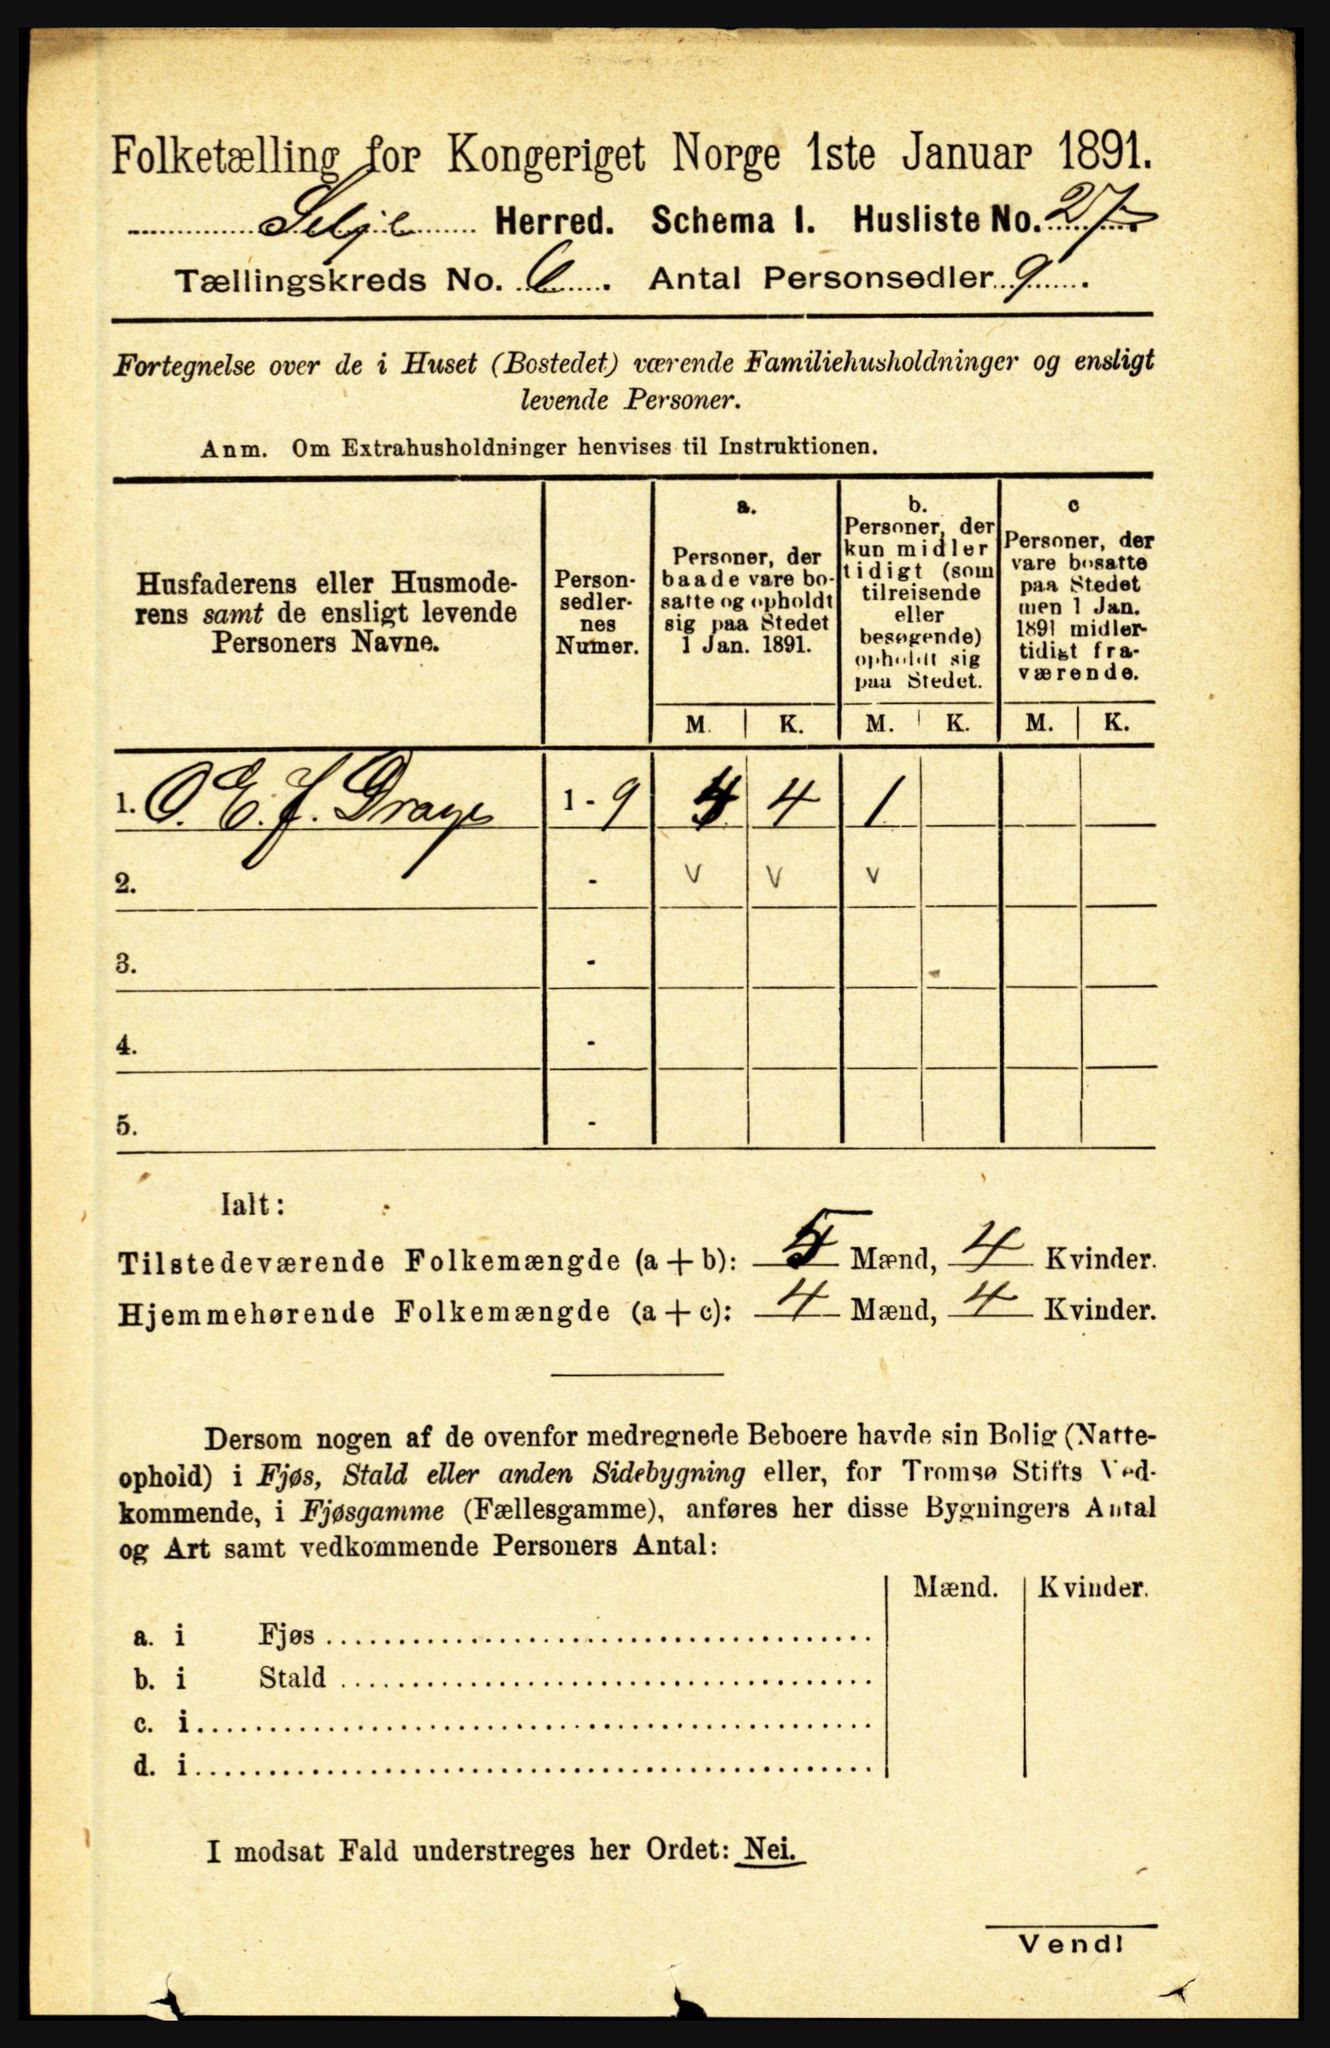 Folketælling for Kongeriget Norge 1ste Januar 1891.
Selje Herred. Schema I. Husliste No. 27
Tællingskreds No. 6. Antal Personsedler 9.
Fortegnelse over de i Huset (Bostedet) værende Familiehusholdninger og ensligt
levende Personer.
Anm. Om Extrahusholdninger henvises til Instruktionen.
Husfaderens eller Husmode-
rens samt de ensligt levende
Personers Navne.
Person-
sedler-
nes
Numer.
a.
Personer, der
baade vare bo-
satte og opholdt
sig paa Stedet
1 Jan. 1891.
b.
Personer, der
kun midler
tidigt (som
tilreisende
eller
besøgende)
opholdt sig
paa Stedet.
c
Personer, der
vare bosatte
paa Stedet
men 1 Jan.
1891 midler-
tidigt fra-
værende.
M. K. M. K. M. K.
1. O. E. J. Drage 1 - 9 4 4 1
2. - v v v
3. -
4. -
5. -
Ialt:
Tilstedeværende Folkemængde (a + b): 5 Mænd, 4 Kvinder.
Hjemmehørende Folkemængde (a + c): 4 Mænd, 4 Kvinder.
Dersom nogen af de ovenfor medregnede Beboere havde sin Bolig (Natte-
ophold) i Fjøs, Stald eller anden Sidebygning eller, for Tromsø Stifts Ved-
kommende, i Fjøsgamme (Fællesgamme), anføres her disse Bygningers Antal
og Art samt vedkommende Personers Antal:
Mænd. Kvinder.
a. i Fjøs
b. i Stald
c. i
d. i
I modsat Fald understreges her Ordet: Nei.
Vend!